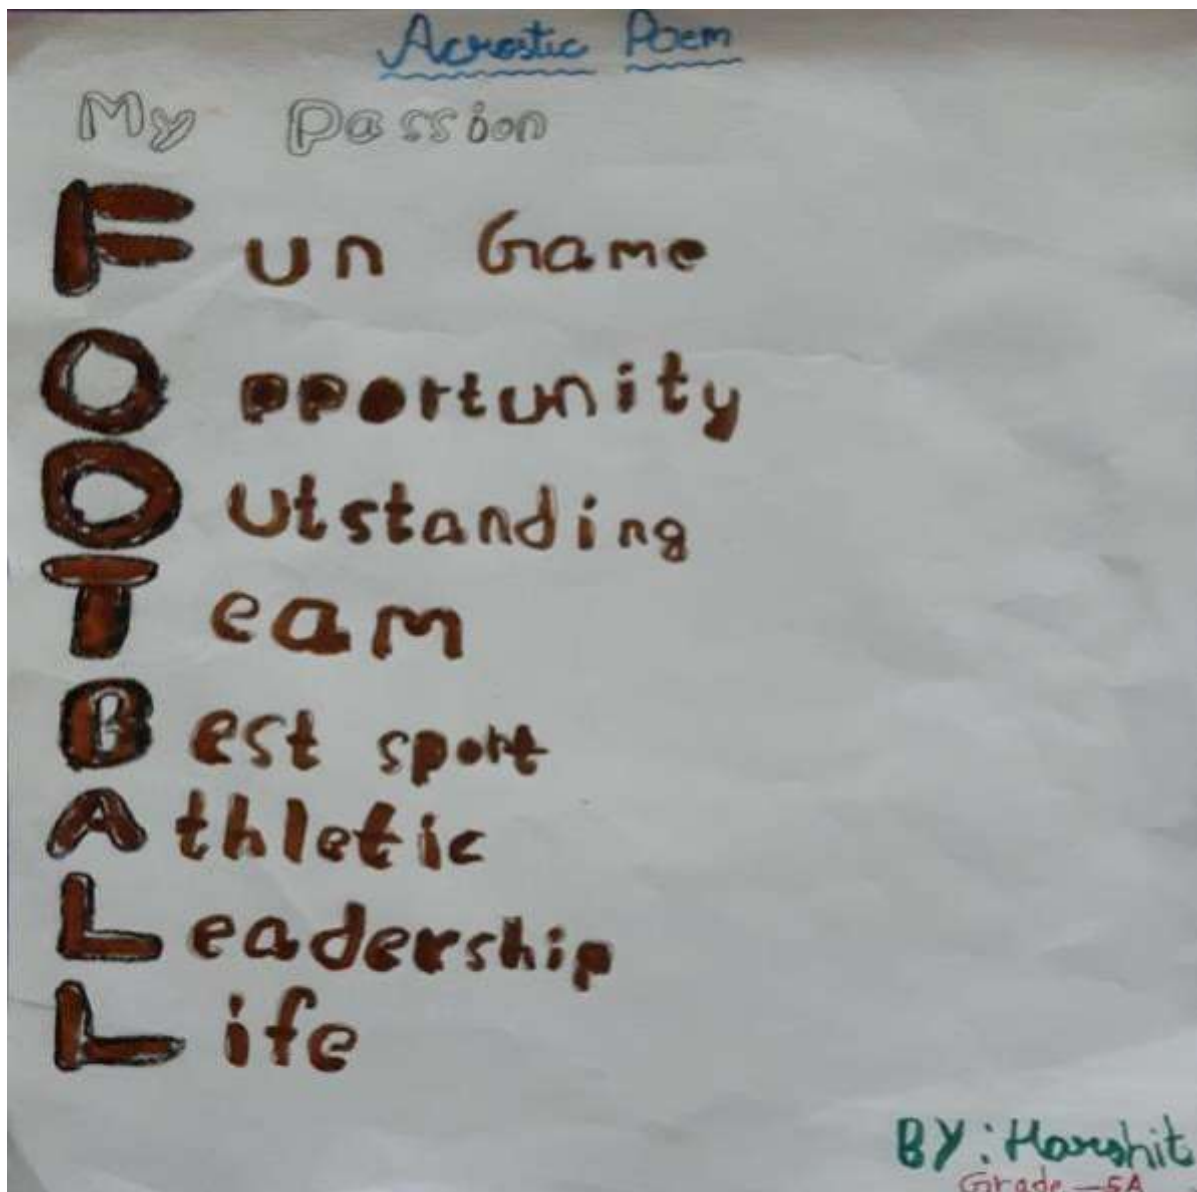 Acrostic Poem
My Passion
Fun Game
Opportunity
Outstanding
Team
Best sport
Athletic
Leadership
Life
BY: Harshit
Grade - 5A